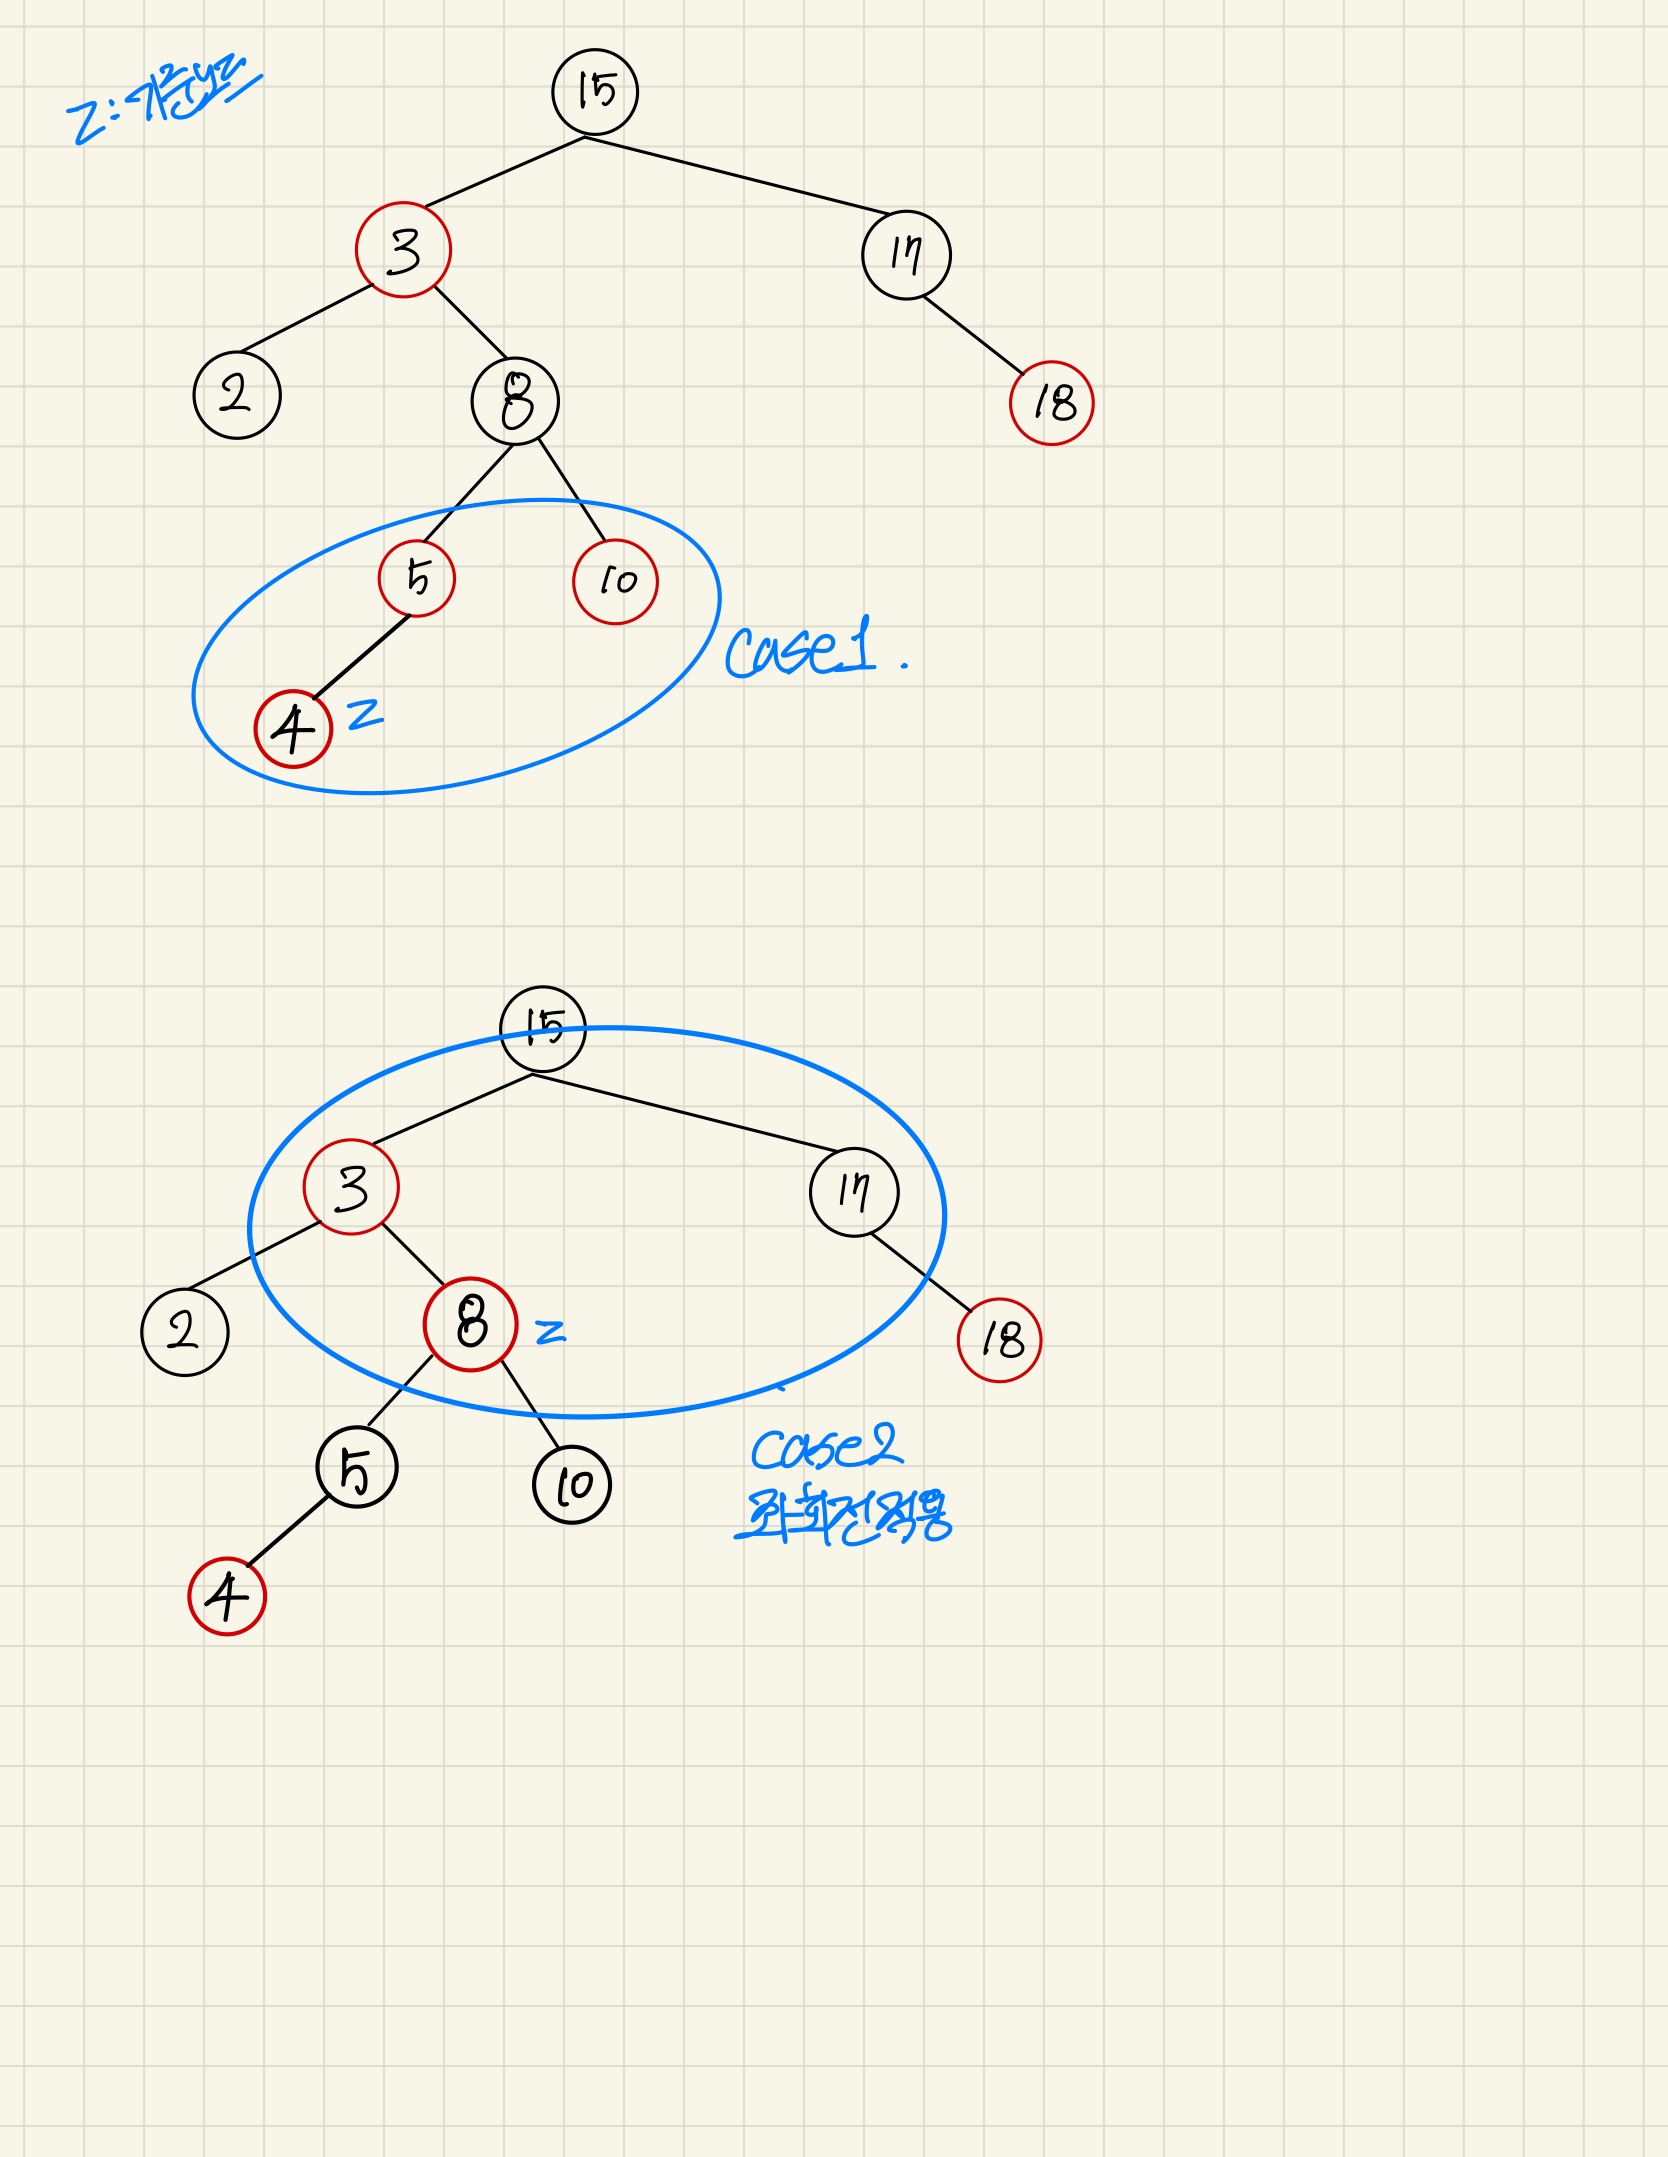 z: 기준
15
3
17
2
8
18
5
10
case1.
4
z
15
3
17
2
8
z
18
5
10
case2
좌회전 적용
4